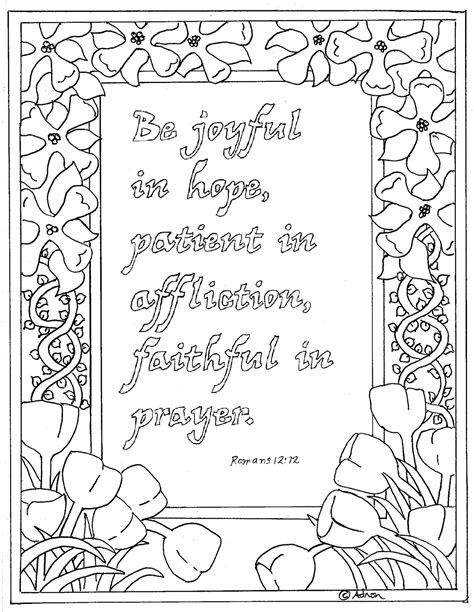 Be joyful
in hope,
patient in
affliction,
faithful in
prayer.
Romans 12:12
© Adron